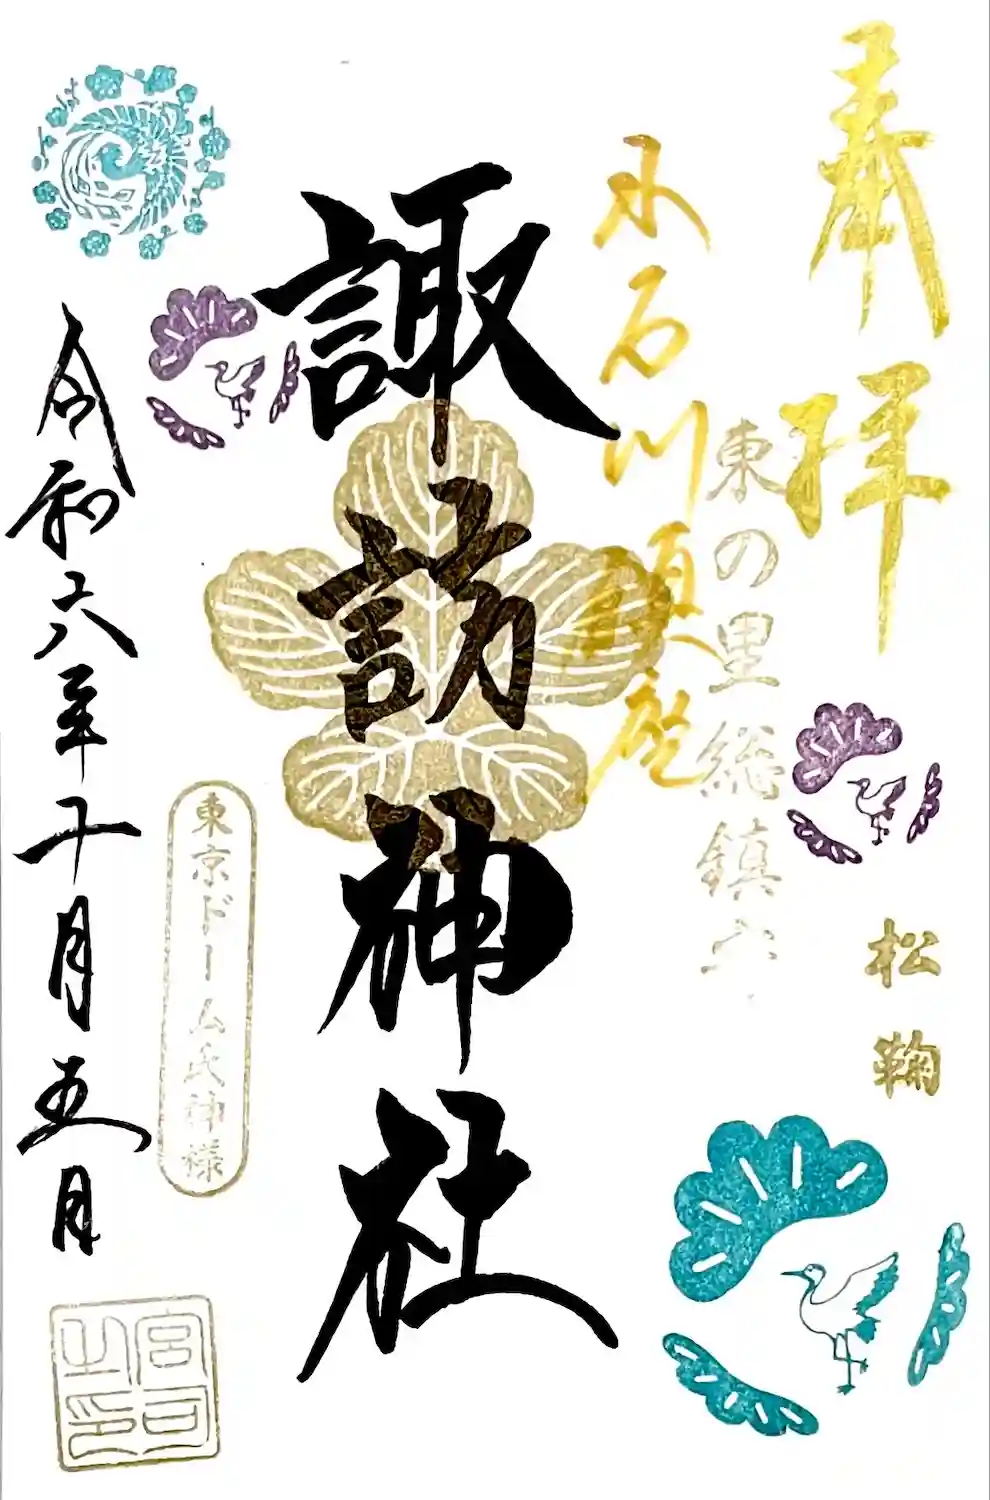 奉拝
松鞠
東の里総鎮守
小石川鎮座
諏訪神社
東京ドーム氏神様
令和六年十月五日
宮司之印